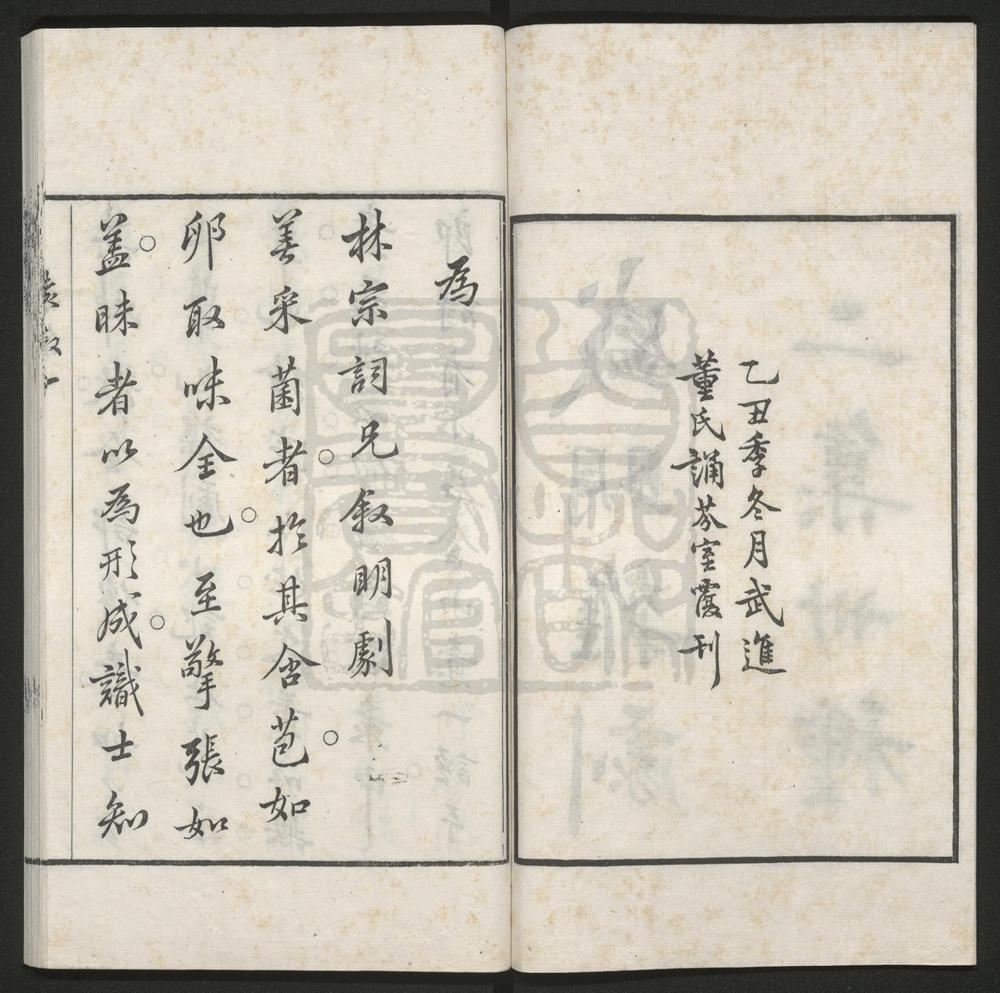 乙丑季冬月武進
董氏誦芬室覆刊
為
林宗詞兄叙明劇
善采菌者○於其含苞○如
卵取味全也○至擎張如
盖○昧者以為形成○識士知